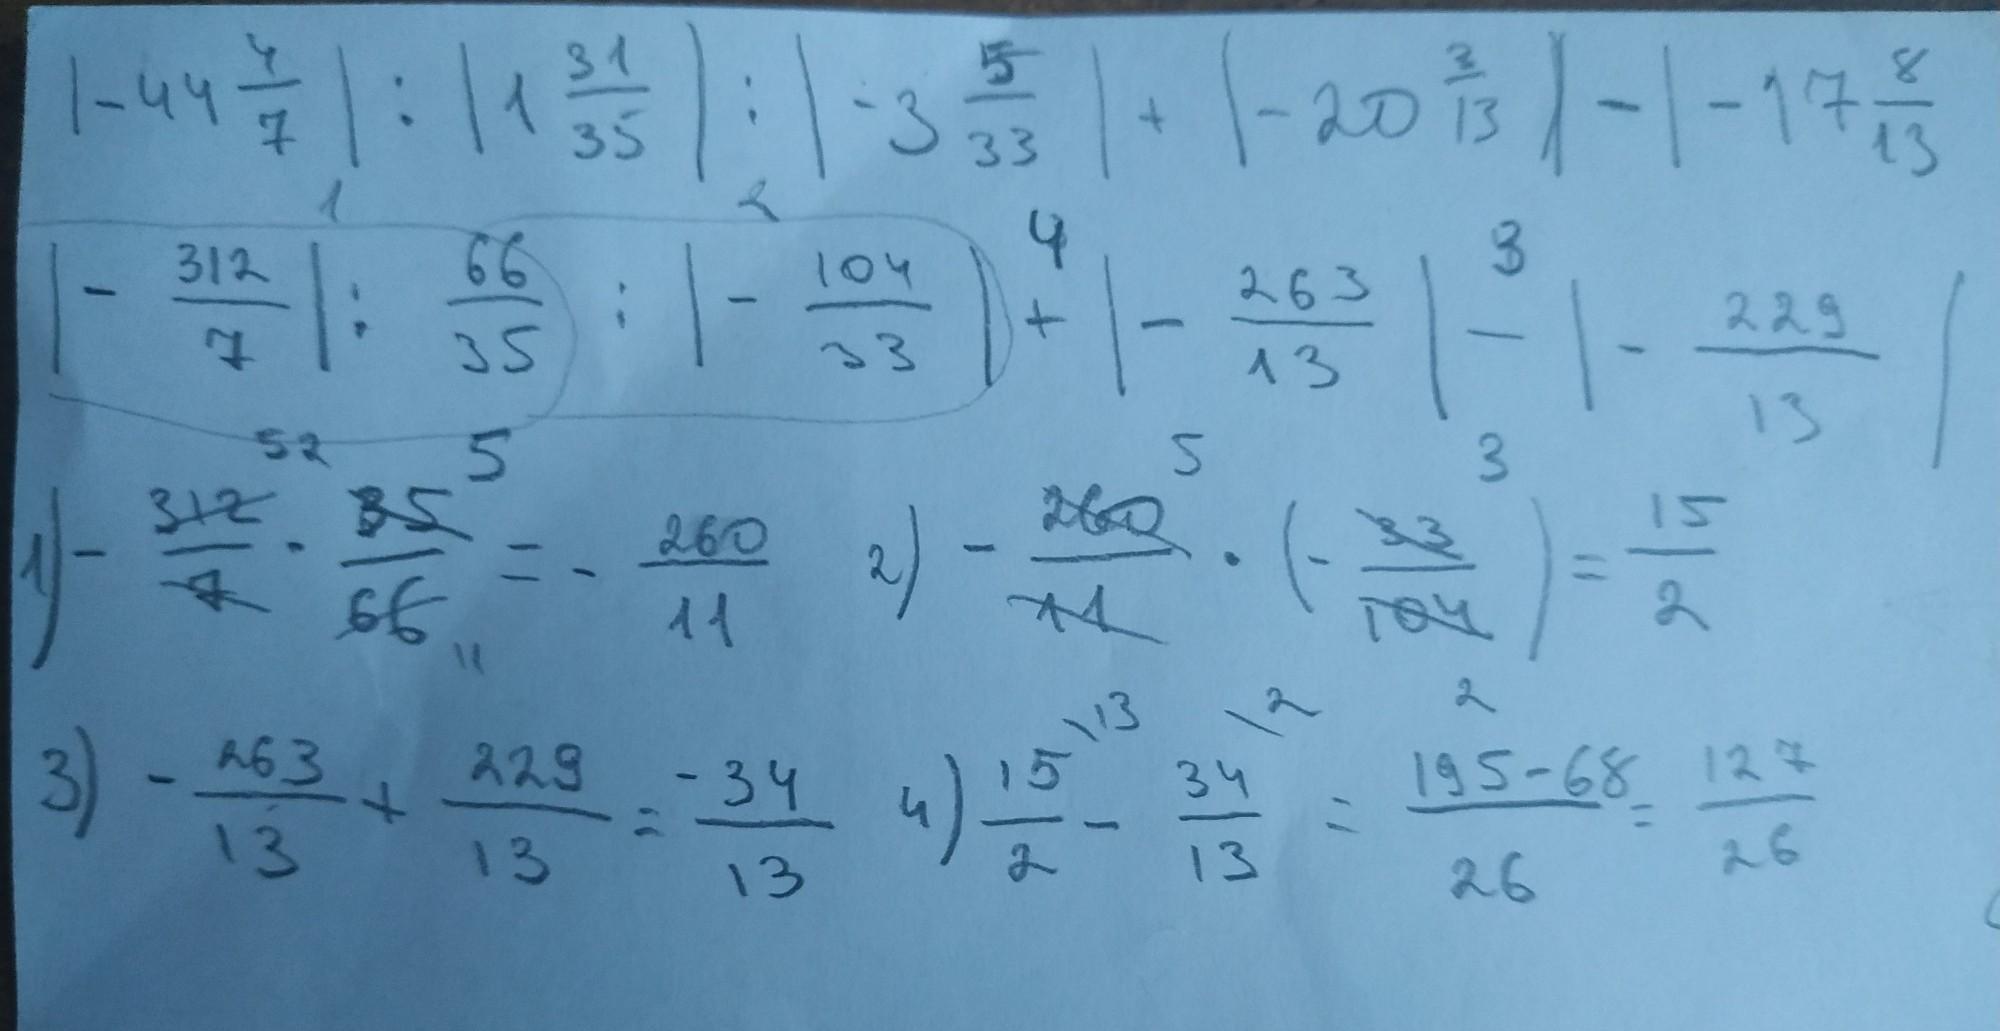 |-44 4/7| : |1 31/35| : |-3 5/33| + |-20 3/13| - |-17 8/13
1 2 4 3
|- 312/7| : 66/35 : |- 104/33| + |- 263/13| - |- 229/13|
52 5 5 3
1) - 312/7 · 35/66 = - 260/11 2) - 260/11 · (- 33/104) = 15/2
11 2
3) - 263/13 + 229/13 = -34/13 4) 15/2 \13 - 34/13 \2 = 195-68/26 = 127/26